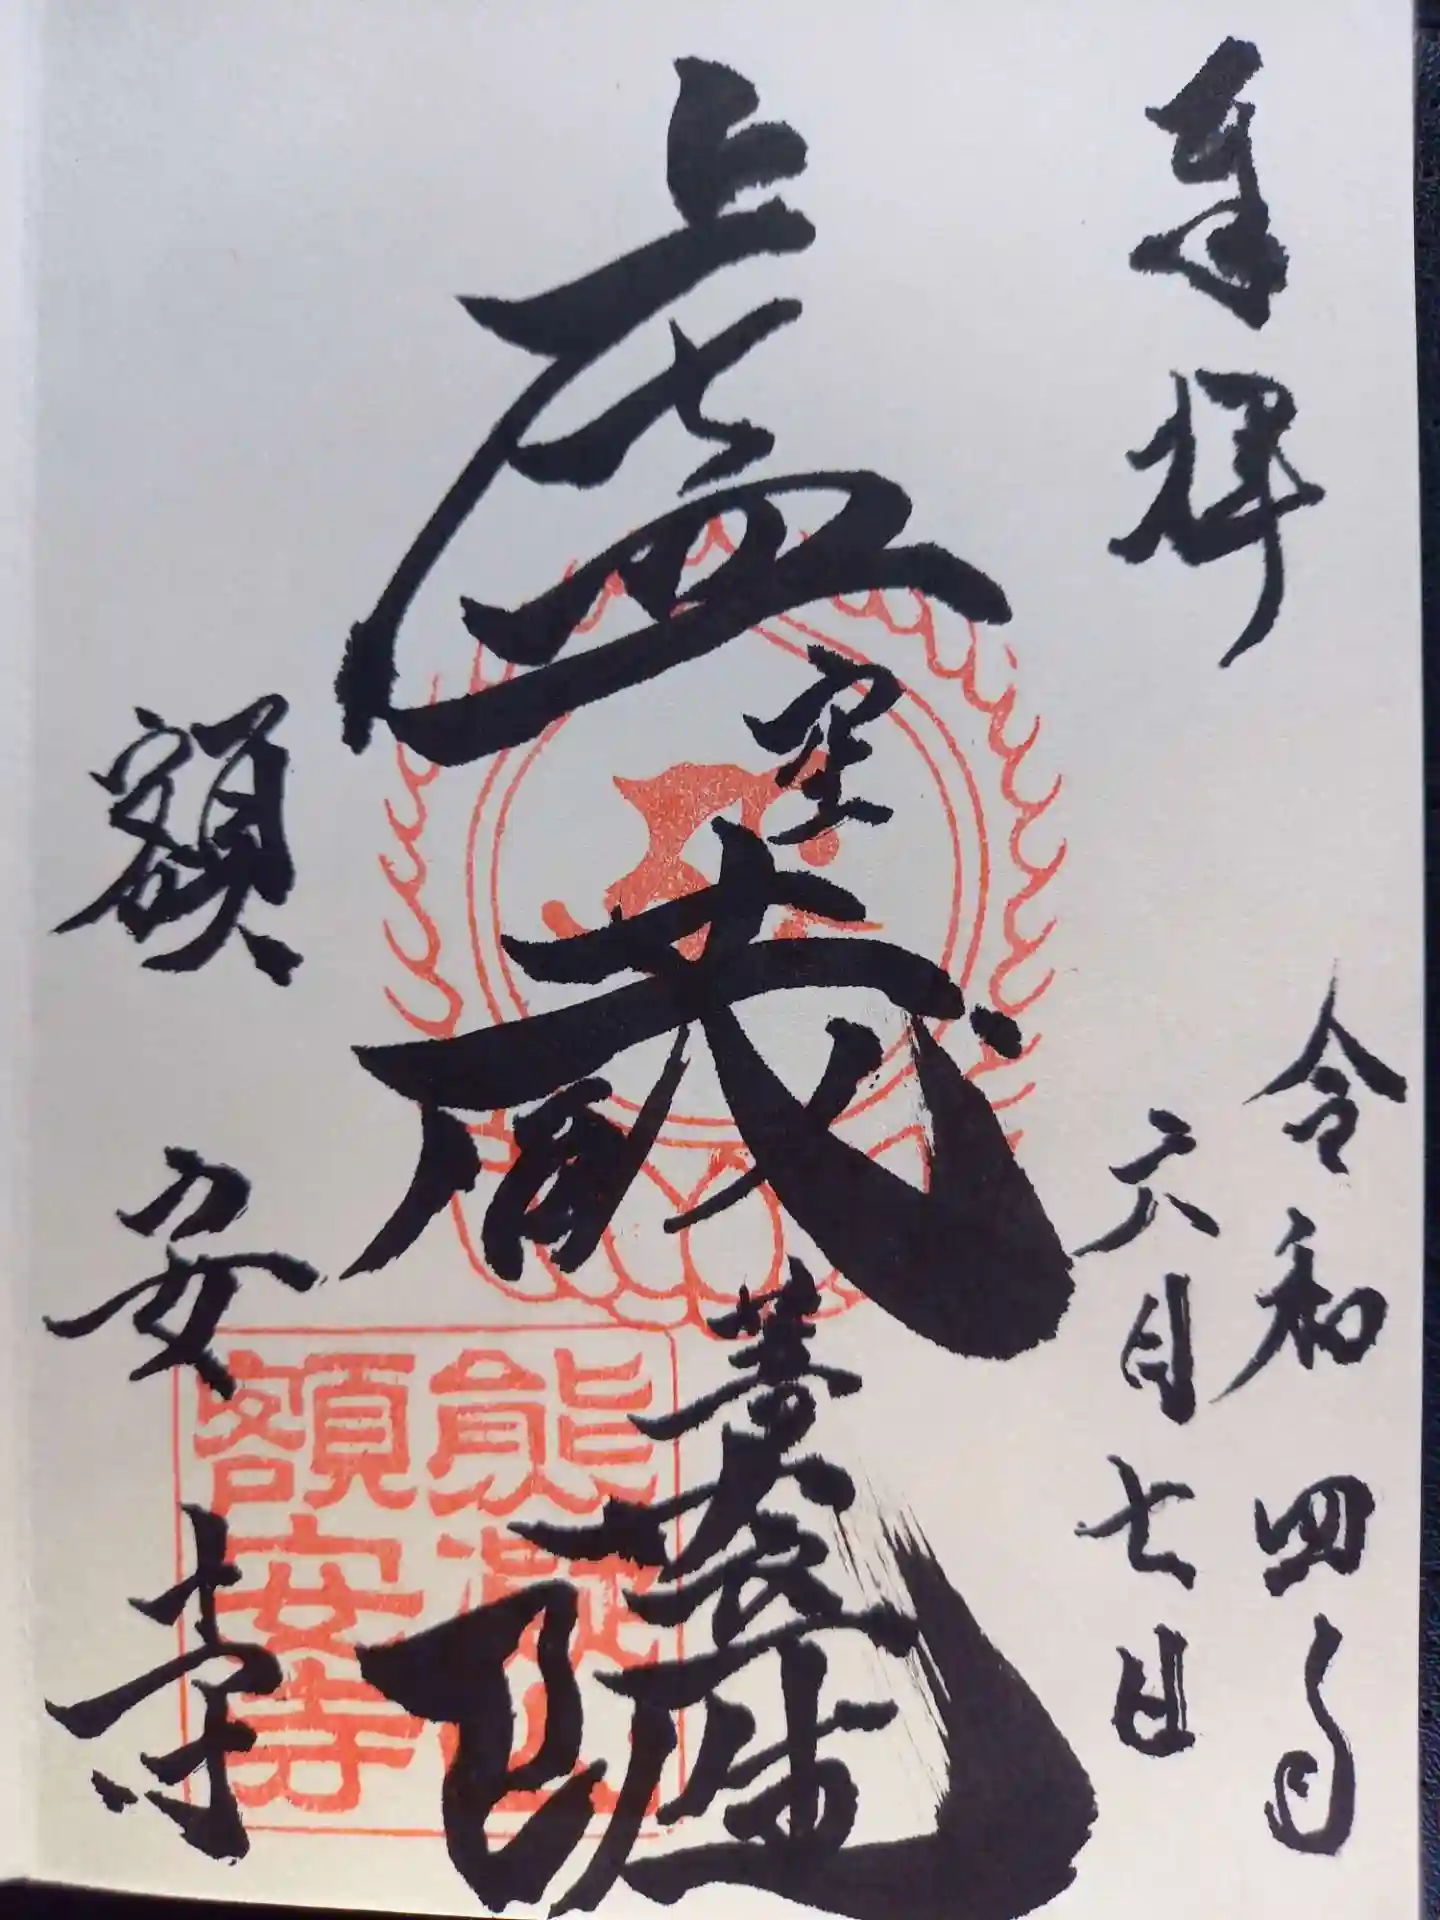 奉拝
令和四年
六月七日
虚空蔵菩薩
額安寺
熊凝山
額安寺